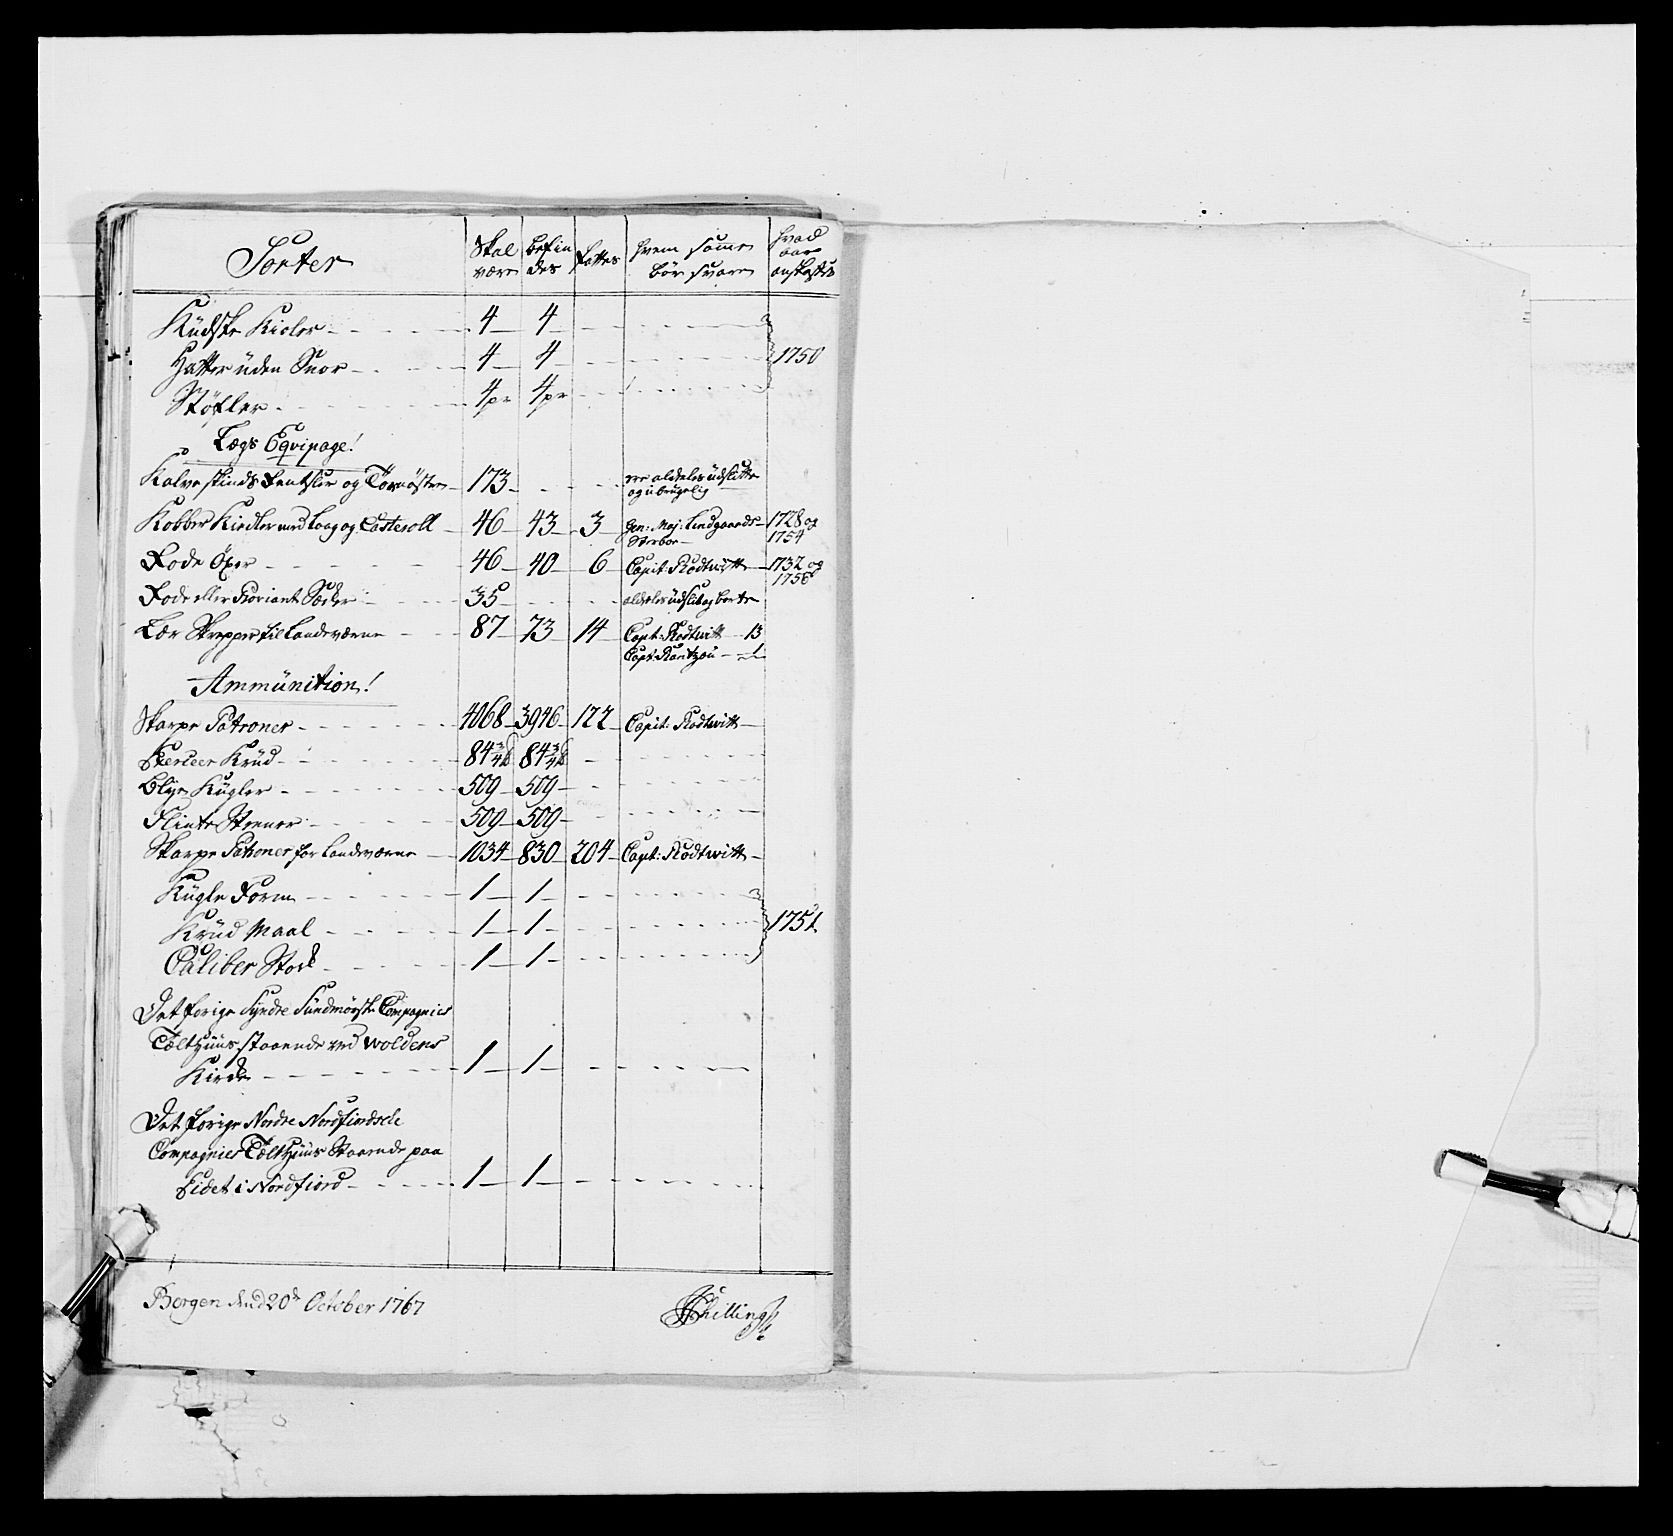 Sorter Skal være befin des fattes hvem såme bör svare hvad aar anskaffet
Kudske Kioler 4 4
Hatter uden Snor 4 4 1750
Støfler 4 pr 4 pr
Lægs Eqvipage!
Kalve skinds Rentsler og Tornöster 173 ere aldeles udslitte
og ubrugelig
Kobber Kiedler med Laag og Casteroll 46 43 3 Gen: Maj: Lindgaards 1728 og
Sterboe 1754
Rode Öxer 46 40 6 Capit: Rodtwitt 1732 og
1756
Rode eller Proviant Sæcker 35 aldeles udslit og borte
Lær Skrepper til Landeværne 87 73 14 Capt: Rodtwitt 13
Capt: Rantzou 1
Ammunition!
Skarpe Patroner 4068 3946 122 Capit: Rodtwitt
Exerceer Krud 84 3/4 ℔ 84 3/4 ℔
Blye Kugler 509 509
Flinte Steener 509 509
Skarpe Patroner for Landeværne 1034 830 204 Capt: Rodtwitt
Kugle Form 1 1
Krud Maal 1 1 1751
Caliber Stock 1 1
Det forige Syndre Sundmörske Compagnies
Tælthuus staaende ved Woldens
Kircke 1 1
Det forige Nordre Nordfiordsche
Compagnies Tælthuus Staaende paa
Eidet i Nordfiord 1 1
Bergen dend 20de October 1767
Schilling